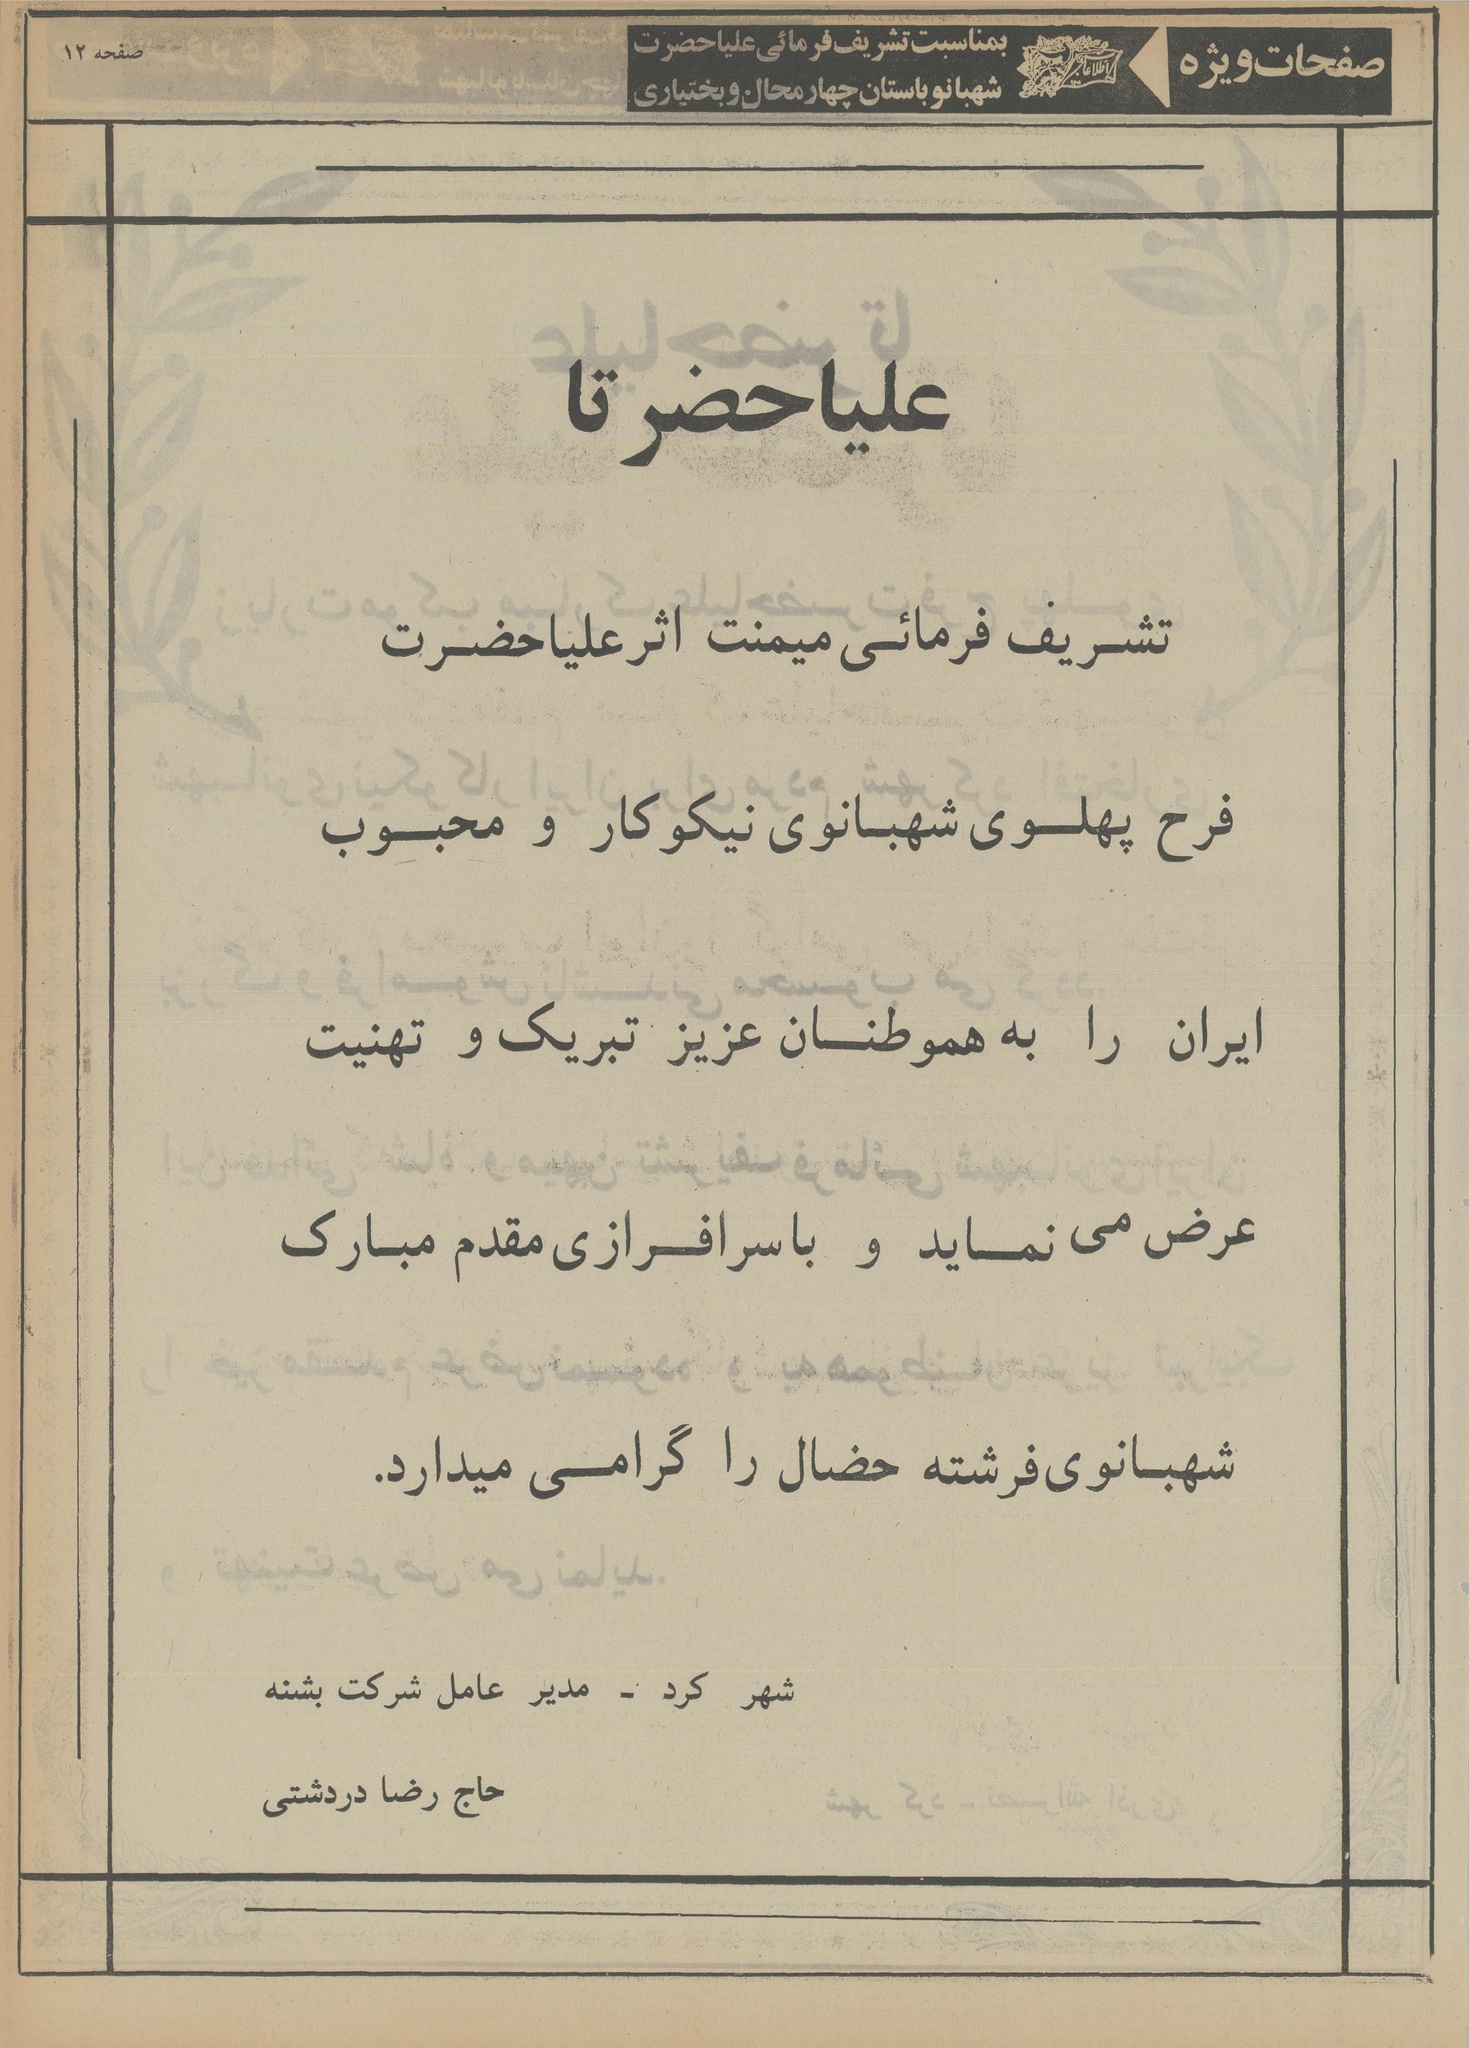 صفحات ویژه
اطلاعات
بمناسبت تشریف فرمائی علیاحضرت
شهبانو باستان چهارمحال و بختیاری
صفحه ۱۲
علیاحضرتا
تشریف فرمائی میمنت اثر علیاحضرت
فرح پهلوی شهبانوی نیکوکار و محبوب
ایران را به هموطنان عزیز تبریک و تهنیت
عرض می نماید و باسرافرازی مقدم مبارک
شهبانوی فرشته حضال را گرامی میدارد.
شهر کرد - مدیر عامل شرکت بشنه
حاج رضا دردشتی